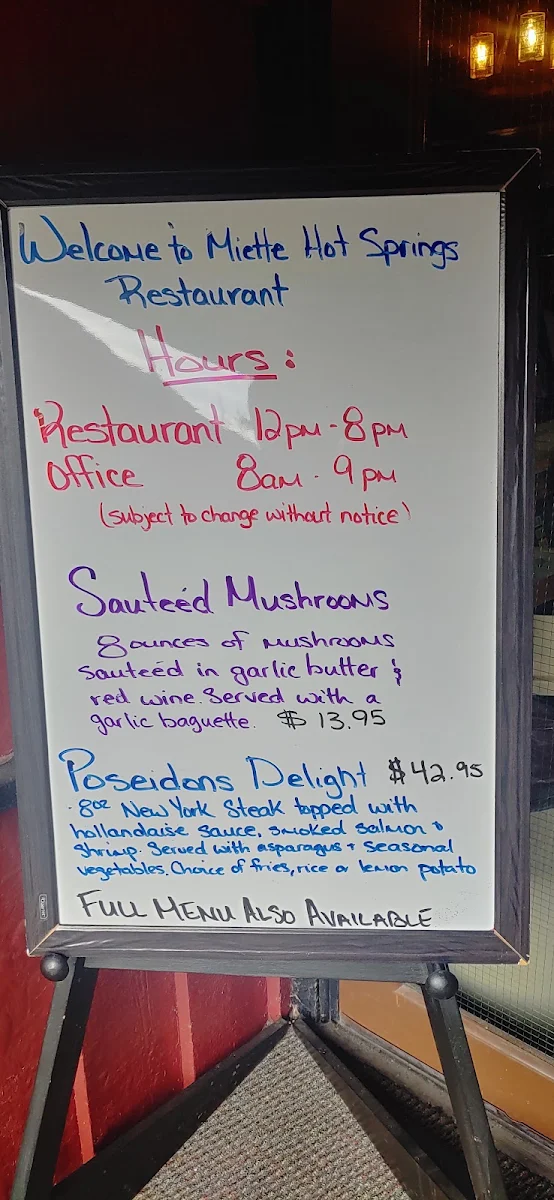 Welcome to Miette Hot Springs
Restaurant
Hours:
Restaurant 12pm - 8pm
Office 8am - 9pm
(subject to change without notice)
Sauteéd Mushrooms
8 ounces of mushrooms
sauteéd in garlic butter &
red wine. Served with a
garlic baguette. $ 13.95
Poseidons Delight $42.95
8oz New York Steak topped with
hollandaise sauce, smoked salmon &
shrimp. Served with asparagus + seasonal
vegetables. Choice of fries, rice or lemon potato
Full Menu Also Available